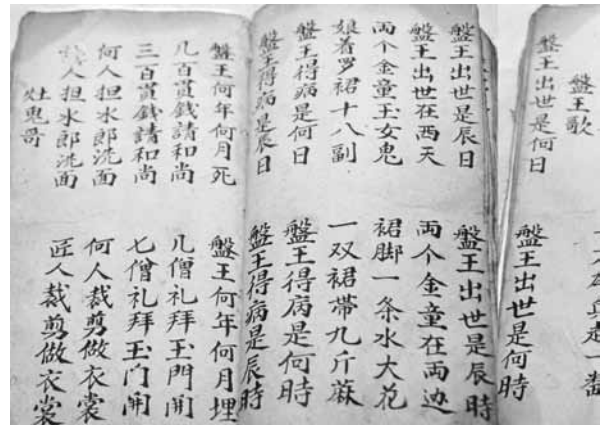 盤王歌
盤王出世是何日 盤王出世是何時
盤王出世是辰日 盤王出世是辰時
盤王出世在西天 両个金童在両边
両个金童玉女鬼 裙脚一条水大花
娘着罗裙十八副 一双裙帶九斤蔴
盤王得病是何日 盤王得病是何時
盤王得病是辰日 盤王得病是辰時
盤王何年何月死 盤王何年何月埋
几百貫錢請和尚 几僧礼拜玉門開
三百貫錢請和尚 七僧礼拜玉门開
何人担水郎洗面 何人裁剪做衣裳
人担水郎洗面 匠人裁剪做衣裳
灶鬼哥